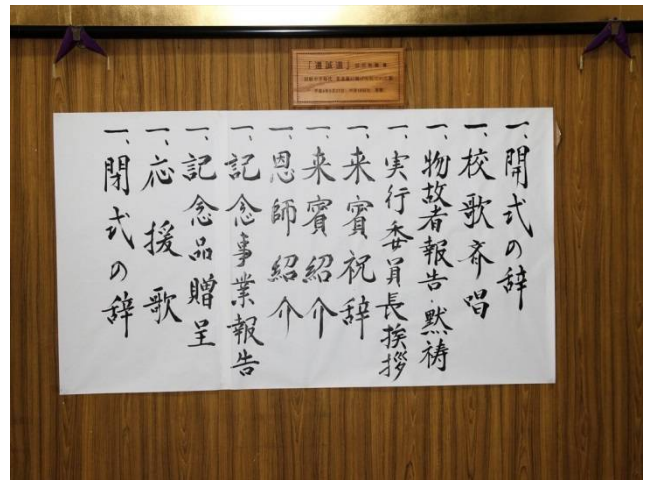 「道誠議」
一、開式の辞
一、校歌斉唱
一、物故者報告・黙祷
一、実行委員長挨拶
一、来賓祝辞
一、来賓紹介
一、恩師紹介
一、記念事業報告
一、記念品贈呈
一、応援歌
一、閉式の辞